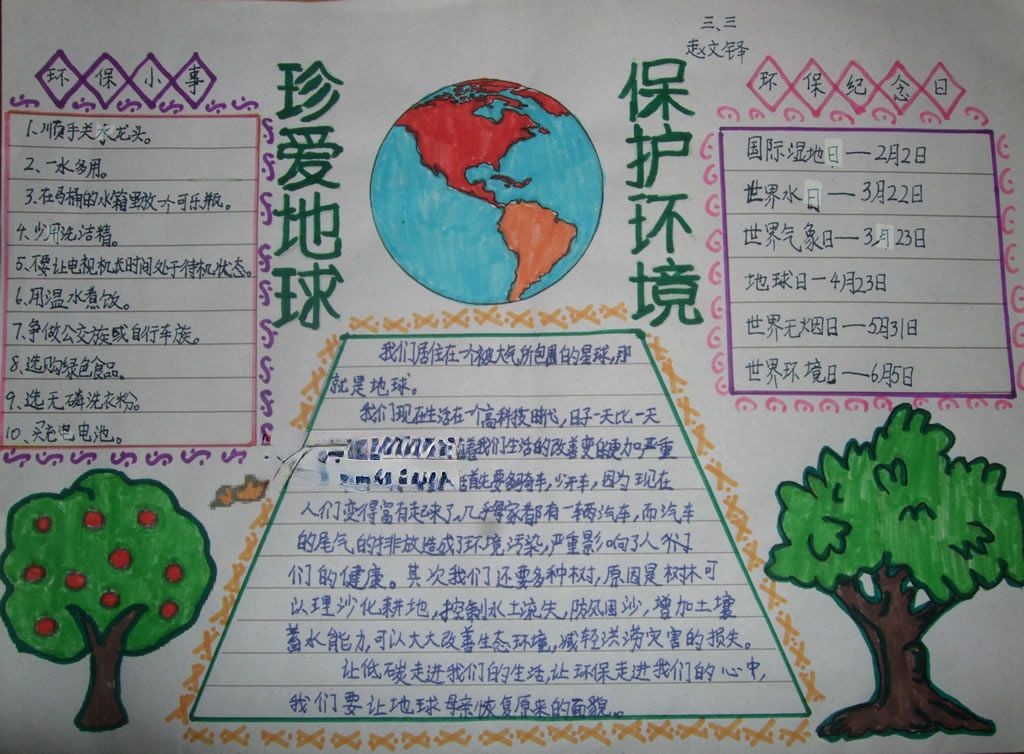 三、三
赵文铎
珍爱地球
保护环境
环保小事
1、顺手关水龙头。
2、一水多用。
3、在马桶的水箱里放一个可乐瓶。
4、少用洗洁精。
5、不要让电视机长时间处于待机状态。
6、用温水煮饭。
7、争做公交族或自行车族。
8、选购绿色食品。
9、选无磷洗衣粉。
10、买充电电池。
环保纪念日
国际湿地日—2月2日
世界水日—3月22日
世界气象日—3月23日
地球日—4月23日
世界无烟日—5月31日
世界环境日—6月5日
我们居住在一个被大气所包围的星球,那
就是地球。
我们现在生活在一个高科技时代,日子一天比一天
着我们生活的改善变的更加严重
首先要多骑车,少开车,因为现在
人们变得富有起来了,几乎每家都有一辆汽车,而汽车
的尾气的排放造成了环境污染,严重影响了人
们的健康。其次我们还要多种树,原因是树林可
以理沙化耕地,控制水土流失,防风固沙,增加土壤
蓄水能力,可以大大改善生态环境,减轻洪涝灾害的损失。
让低碳走进我们的生活,让环保走进我们的心中,
我们要让地球母亲恢复原来的面貌。